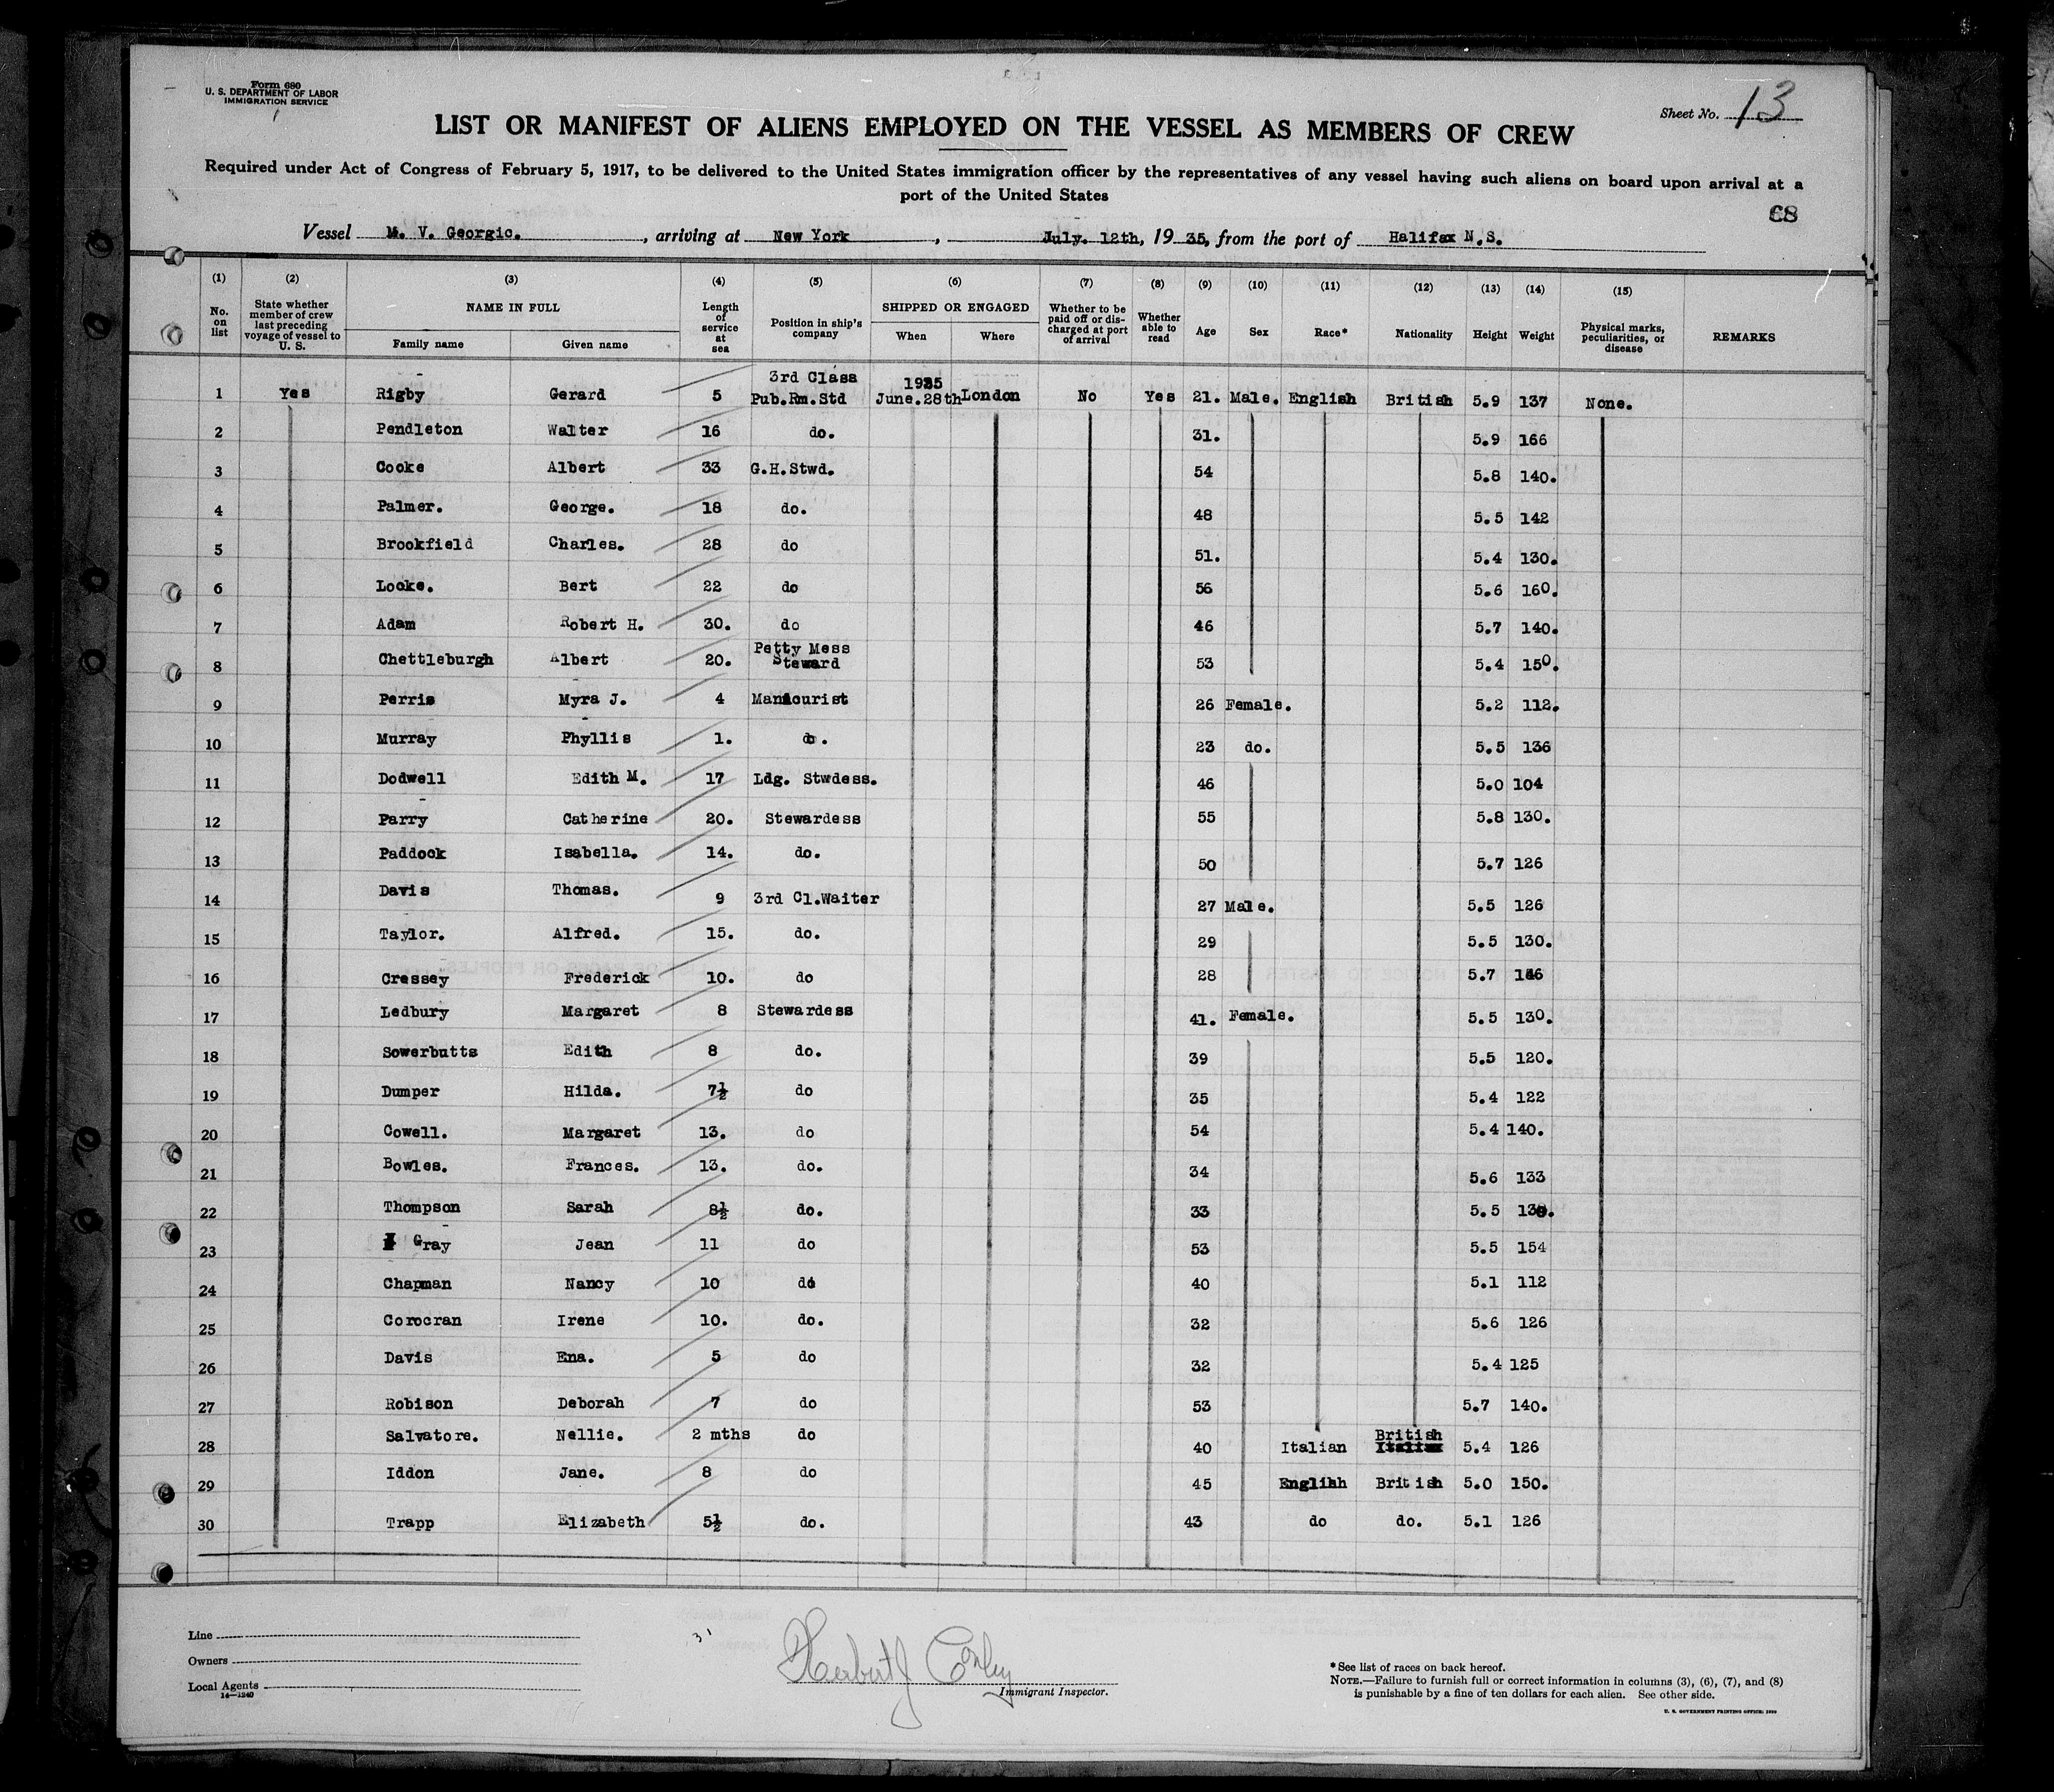 Form 680
U. S. DEPARTMENT OF LABOR
IMMIGRATION SERVICE
Sheet No. 13
LIST OR MANIFEST OF ALIENS EMPLOYED ON THE VESSEL AS MEMBERS OF CREW
Required under Act of Congress of February 5, 1917, to be delivered to the United States immigration officer by the representatives of any vessel having such aliens on board upon arrival at a
port of the United States
Vessel M. V. Georgic. , arriving at New York , July. 12th, 19 35, from the port of Halifax N.S.
(1) (2) (3) (4) (5) (6) (7) (8) (9) (10) (11) (12) (13) (14) (15)
No. on list State whether member of crew last preceding voyage of vessel to U. S. NAME IN FULL Family name Given name Length of service at sea Position in ship's company SHIPPED OR ENGAGED When Where Whether to be paid off or discharged at port of arrival Whether able to read Age Sex Race* Nationality Height Weight Physical marks, peculiarities, or disease REMARKS
1 Yes Rigby Gerard 5 3rd Class Pub.Rm.Std 1935 June.28th London No Yes 21. Male. English British 5.9 137 None.
2 Pendleton Walter 16 do. 31. 5.9 166
3 Cooke Albert 33 G.H.Stwd. 54 5.8 140.
4 Palmer. George. 18 do. 48 5.5 142
5 Brookfield Charles. 28 do 51. 5.4 130.
6 Locke. Bert 22 do 56 5.6 160.
7 Adam Robert H. 30. do 46 5.7 140.
8 Chettleburgh Albert 20. Petty Mess Steward 53 5.4 150.
9 Perris Myra J. 4 Manicurist 26 Female. 5.2 112.
10 Murray Phyllis 1. do. 23 do. 5.5 136
11 Dodwell Edith M. 17 Ldg. Stwdess. 46 5.0 104
12 Parry Catherine 20. Stewardess 55 5.8 130.
13 Paddock Isabella. 14. do. 50 5.7 126
14 Davis Thomas. 9 3rd Cl.Waiter 27 Male. 5.5 126
15 Taylor. Alfred. 15. do. 29 5.5 130.
16 Cressey Frederick 10. do 28 5.7
17 Ledbury Margaret 8 Stewardess 41. Female. 5.5 130.
18 Sowerbutts Edith 8 do. 39 5.5 120.
19 Dumper Hilda. 7½ do 35 5.4 122
20 Cowell. Margaret 13. do 54 5.4 140.
21 Bowles. Frances. 13. do. 34 5.6 133
22 Thompson Sarah 8½ do. 33 5.5
23 Gray Jean 11 do 53 5.5 154
24 Chapman Nancy 10 do 40 5.1 112
25 Corocran Irene 10. do. 32 5.6 126
26 Davis Ena. 5 do 32 5.4 125
27 Robison Deborah 7 do 53 5.7 140.
28 Salvatore. Nellie. 2 mths do 40 Italian British Italian 5.4 126
29 Iddon Jane. 8 do 45 English British 5.0 150.
30 Trapp Elizabeth 5½ do. 43 do do. 5.1 126
Line
Owners
Local Agents
14—1240
Herbert J Conley
Immigrant Inspector.
*See list of races on back hereof.
NOTE.—Failure to furnish full or correct information in columns (3), (6), (7), and (8)
is punishable by a fine of ten dollars for each alien. See other side.